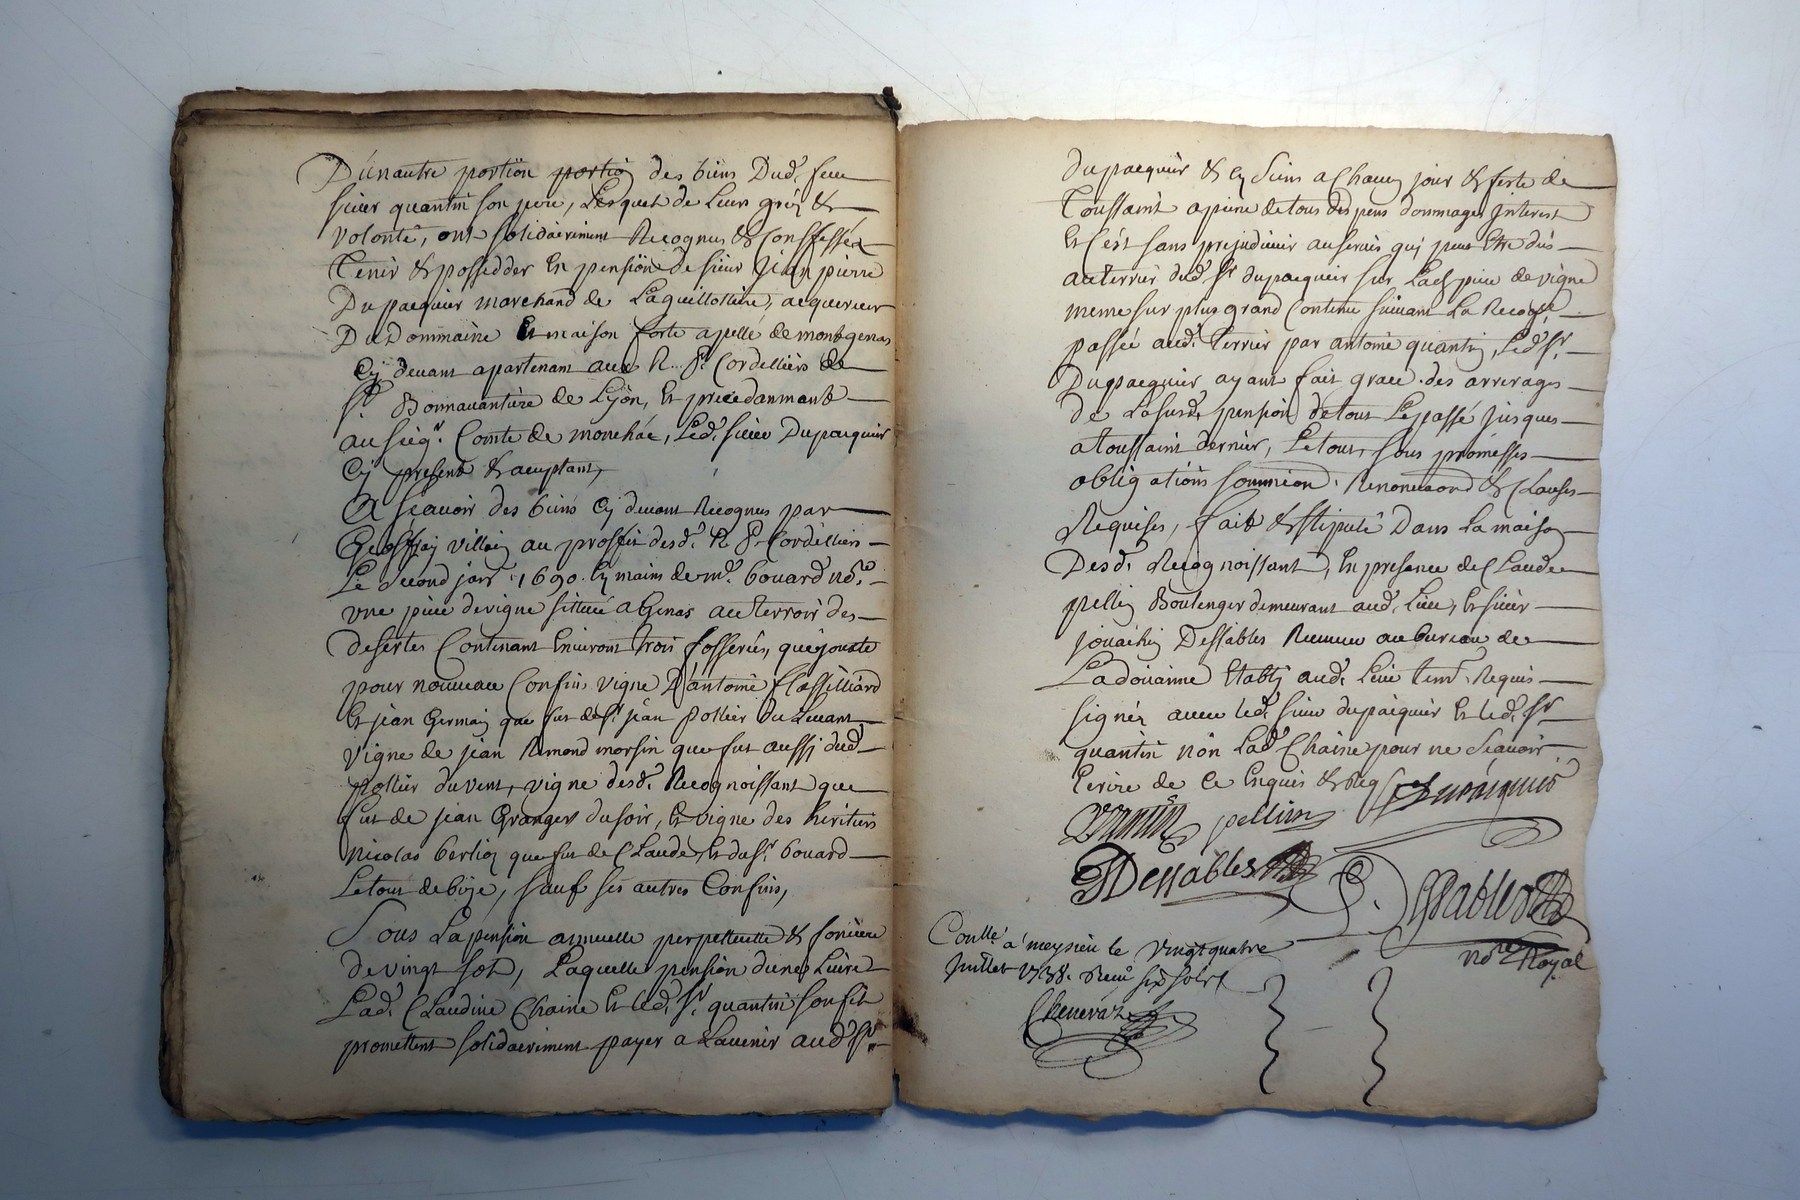 D'une autre portion portion des biens Dud. feu
sieur quantin son pere, Lesquels de Leurs gréz &
volonté, ont solidairement Recognus & Conffessés
Tenir & possedder En pension de sieur Jean pierre
Dupacquier marchand de Laguillottiere, acquereur
Du Dommaine Et maison forte apellé de montgenas
Cy devant apartenant aux R. P. Cordelliers de
St. Bonnavanture de Lyon, Et precedanmant
au seigr. Comte de monchac, Led. sieur Dupacquier
Cy present & aceptant,
A sçavoir des biens Cy devant Recognus par
Geoffray villain au proffit desd. R. P. Cordelliers
Le second janr. 1690. Ez mains de me. bouard nore.
vne piece de vigne sittuée a Genas au terroir des
desertes Contenant Environt trois fosserées, que jouxte
pour nouveau Confins vigne D'antoine flassilliard
Et jean Germain que fut de sr. jean pollier du Levant,
vigne de jean Remond morsin que fut aussi dud.
pollier du vent, vigne desd. Recognoissant que
fut de jean Granger du soir, Et vigne des heritiers
Nicolas berlioz que fut de Claude, Et du sr. bouard
Le tout de bize, sauf ses autres Confins,
Sous La pension annuelle perpettuelle & fonciere
de vingt sols, Laquelle pension dunes Luire
Lad. Claudine Chaine Et led. sr. quantin son fils
promettent solidairement payer a Lavenir aud. sr.
dupacquier & Ez siens a Chacun jour & feste de
Toussaint a peine de tous despens dommages Interest
Et C'est sans prejudicier au servis qui peut Etre dus
au terrier dud. sr. dupacquier sur Lad. piece de vigne
meme sur plus grand Contenu suivant La Recogn.
passée aud. Terrier par antoine quantin, Led. sr.
Dupacquier ayant fait grace des arrerages
de Lasusd. pension de tout Le passé jusques
a toussaint dernier, Le tout sous promesses
obligations soumission. Renonciaond & Clauses
Requises, fait & stipulé Dans La maison
Desd. Recognoissant, En presence de Claude
pellin Boulenger demeurant aud. Lieu, Et sieur
joüachin Dessables Receveur au bureau de
La doüanne Etably aud. Lieu temt. Requis
signéz avec led. sieur dupacquier Et led. sr.
quantin non Lad. Chaine pour ne sçavoir
Ecrire de Ce Enquis & Req Dupacquier
Quantin pellin
JDessables Sables
nore Royal
Conllé. a meysieu le vingt quatre
Juillet 1738. Reçu six sols
Chenevaz